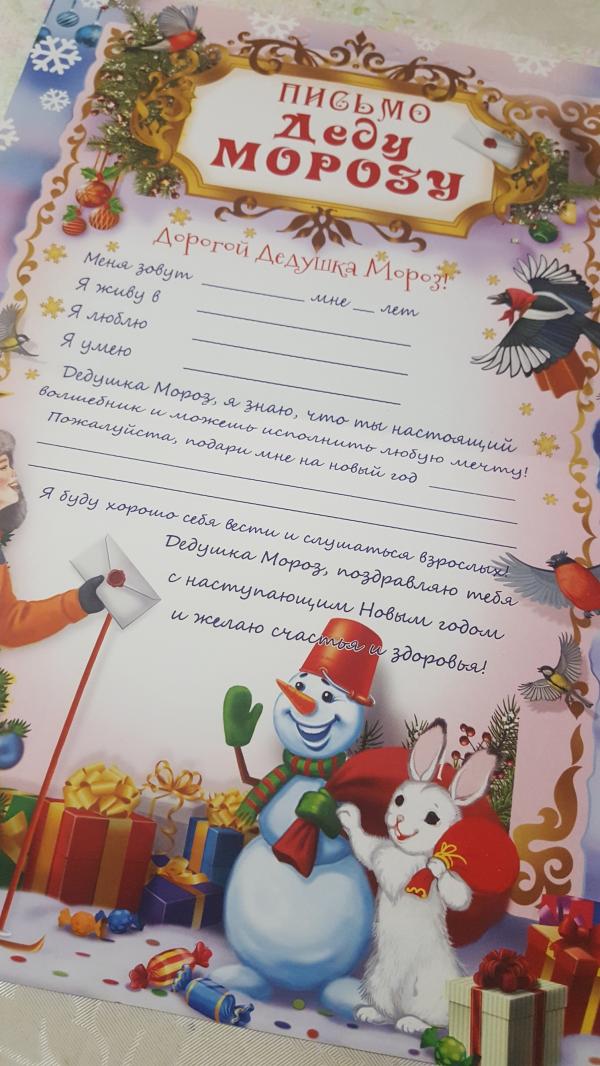 ПИСЬМО
Деду
МОРОЗУ
Дорогой Дедушка Мороз!
Меня зовут __________ мне __ лет
Я живу в ____________________
Я люблю ____________________
Я умею ____________________
Дедушка Мороз, я знаю, что ты настоящий
волшебник и можешь исполнить любую мечту!
Пожалуйста, подари мне на новый год ________
Я буду хорошо себя вести и слушаться взрослых!
Дедушка Мороз, поздравляю тебя
с наступающим Новым годом
и желаю счастья и здоровья!